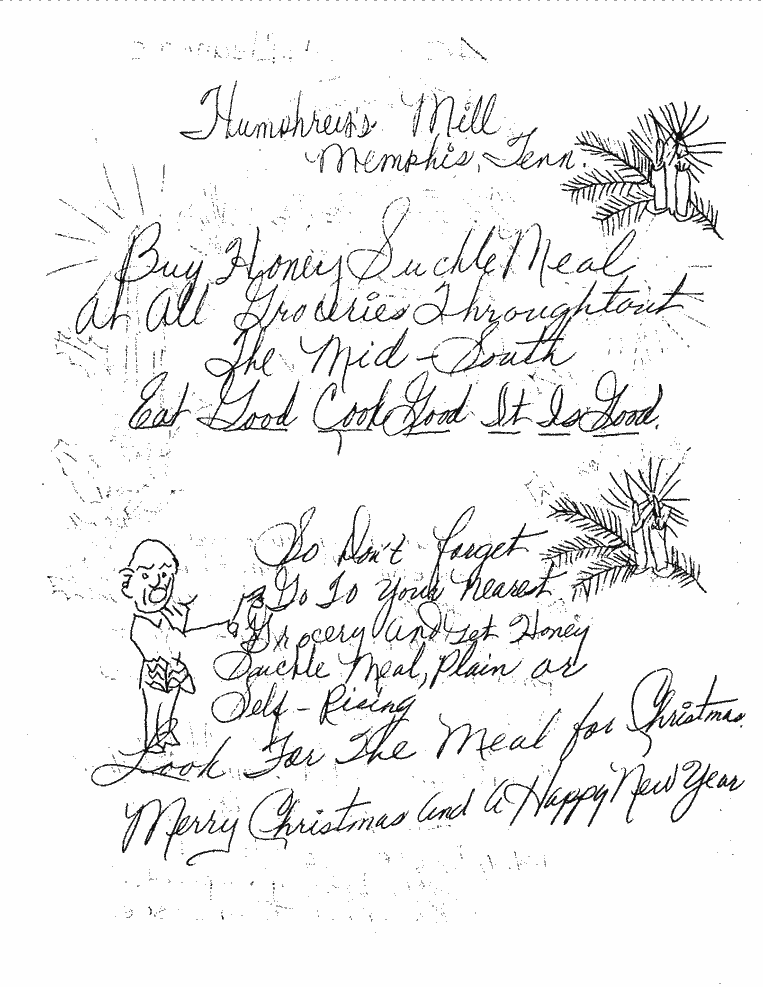 Humphrey's Mill
Memphis, Tenn.
Buy Honey Suckle Meal
at All Groceries Throughtout
The Mid-South
Eat Good Cook Good It Is Good.
So Don't forget
Go To Your nearest
Grocery And Get Honey
Suckle Meal, Plain or
Self-Rising
Look For The Meal for Christmas.
Merry Christmas and A Happy New Year